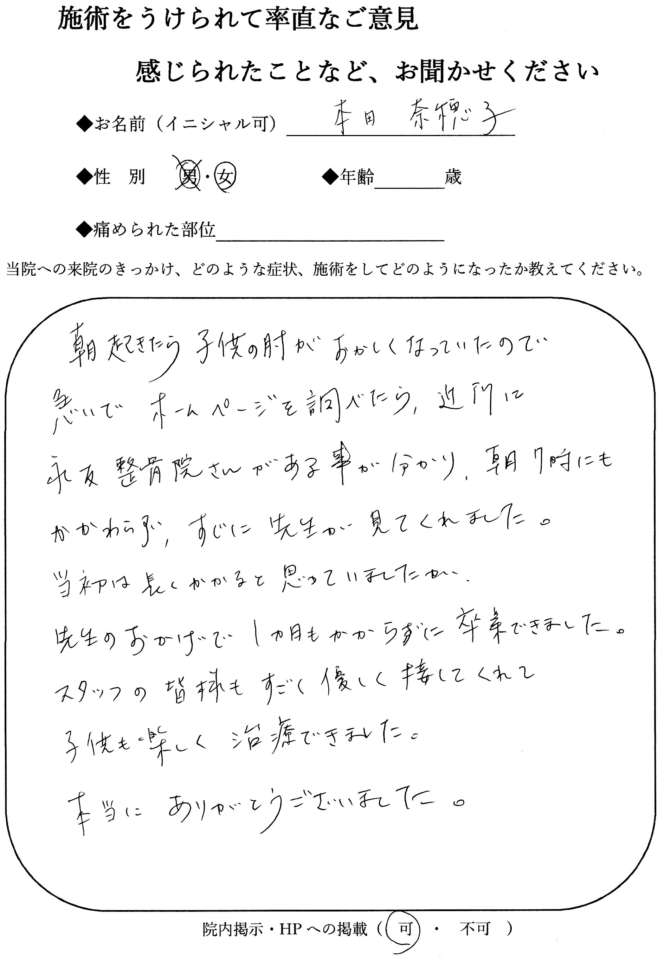 施術をうけられて率直なご意見
感じられたことなど、お聞かせください
◆お名前（イニシャル可） 本田 奈穂子
◆性 別 男・女 ◆年齢 歳
◆痛められた部位
当院への来院のきっかけ、どのような症状、施術をしてどのようになったか教えてください。
朝起きたら子供の肘がおかしくなっていたので
急いで ホームページを調べたら、近所に
永友整骨院さんがある事が分かり、朝7時にも
かかわらず、すぐに先生が見てくれました。
当初は長くかかると思っていましたが、
先生のおかげで1カ月もかからずに卒業できました。
スタッフの皆様もすごく優しく接してくれて
子供も楽しく治療できました。
本当に ありがとうございました。
院内掲示・HPへの掲載（ 可 ・ 不可 ）